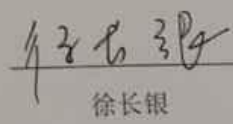 徐长银
徐长银